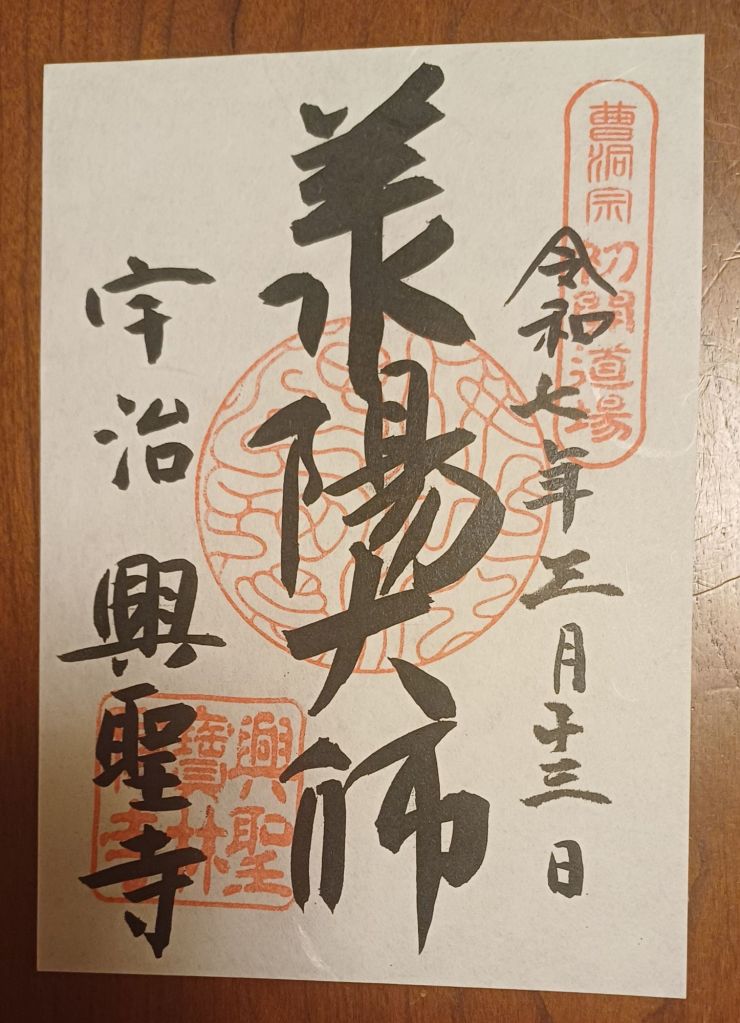 曹洞宗 初開道場
令和七年三月二十三日
承陽大師
宇治 興聖寺
興聖
寶林
禪寺